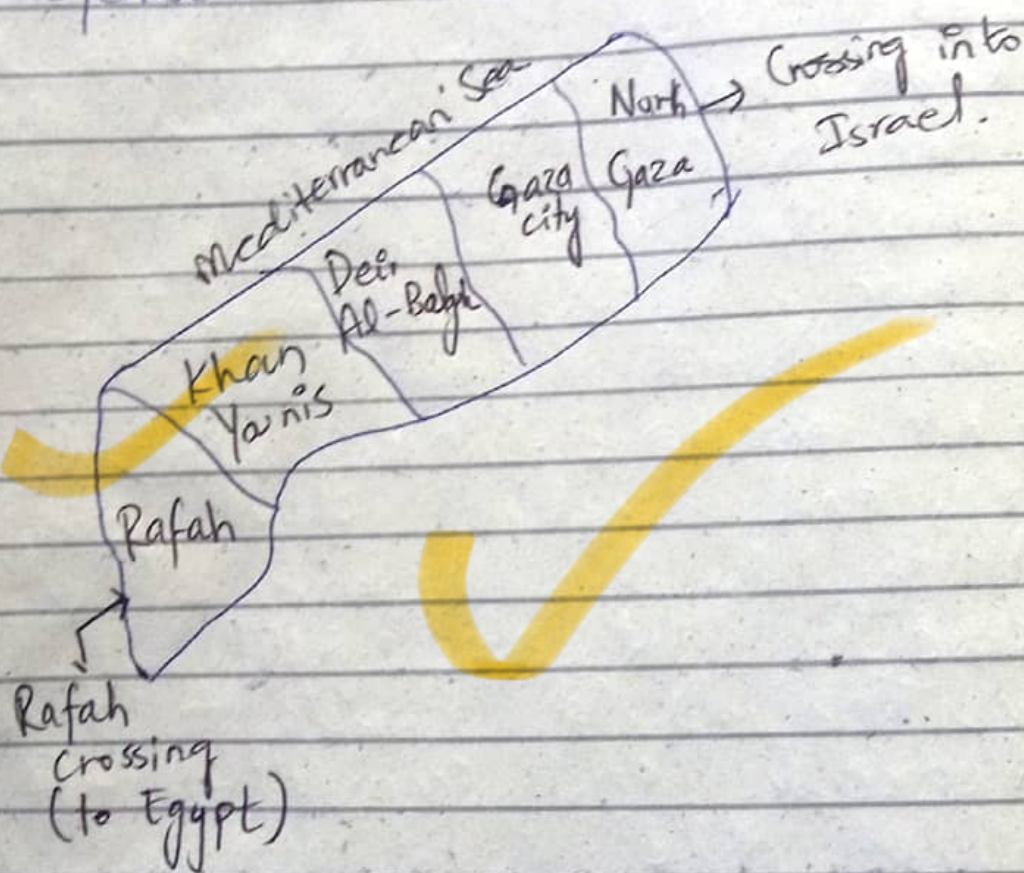 Mediterranean Sea
North
Gaza
→ Crossing into
Israel.
Gaza
city
Deir
Al-Balah
Khan
Younis
Rafah
Rafah
Crossing
(to Egypt)